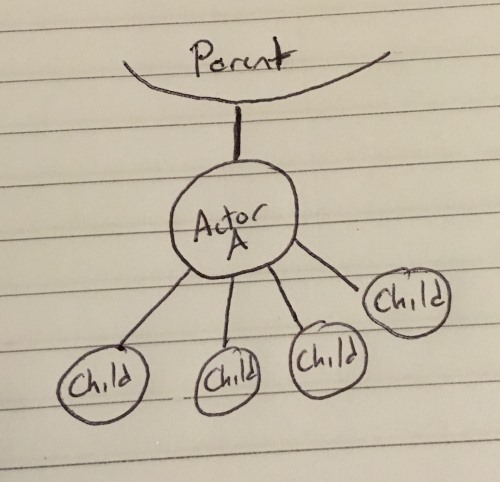 Parent
Actor
A
Child
Child
Child
Child